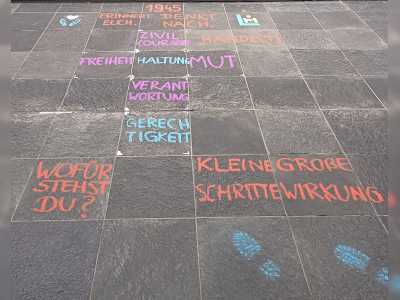 1945
ERINNERT DENKT
EUCH. NACH.
ZIVIL
COURAGE
HANDELT!
FREIHEIT HALTUNG MUT
VERANT
WORTUNG
GERECH
TIGKEIT
WOFÜR
STEHST
DU?
KLEINE GROßE
SCHRITTE WIRKUNG